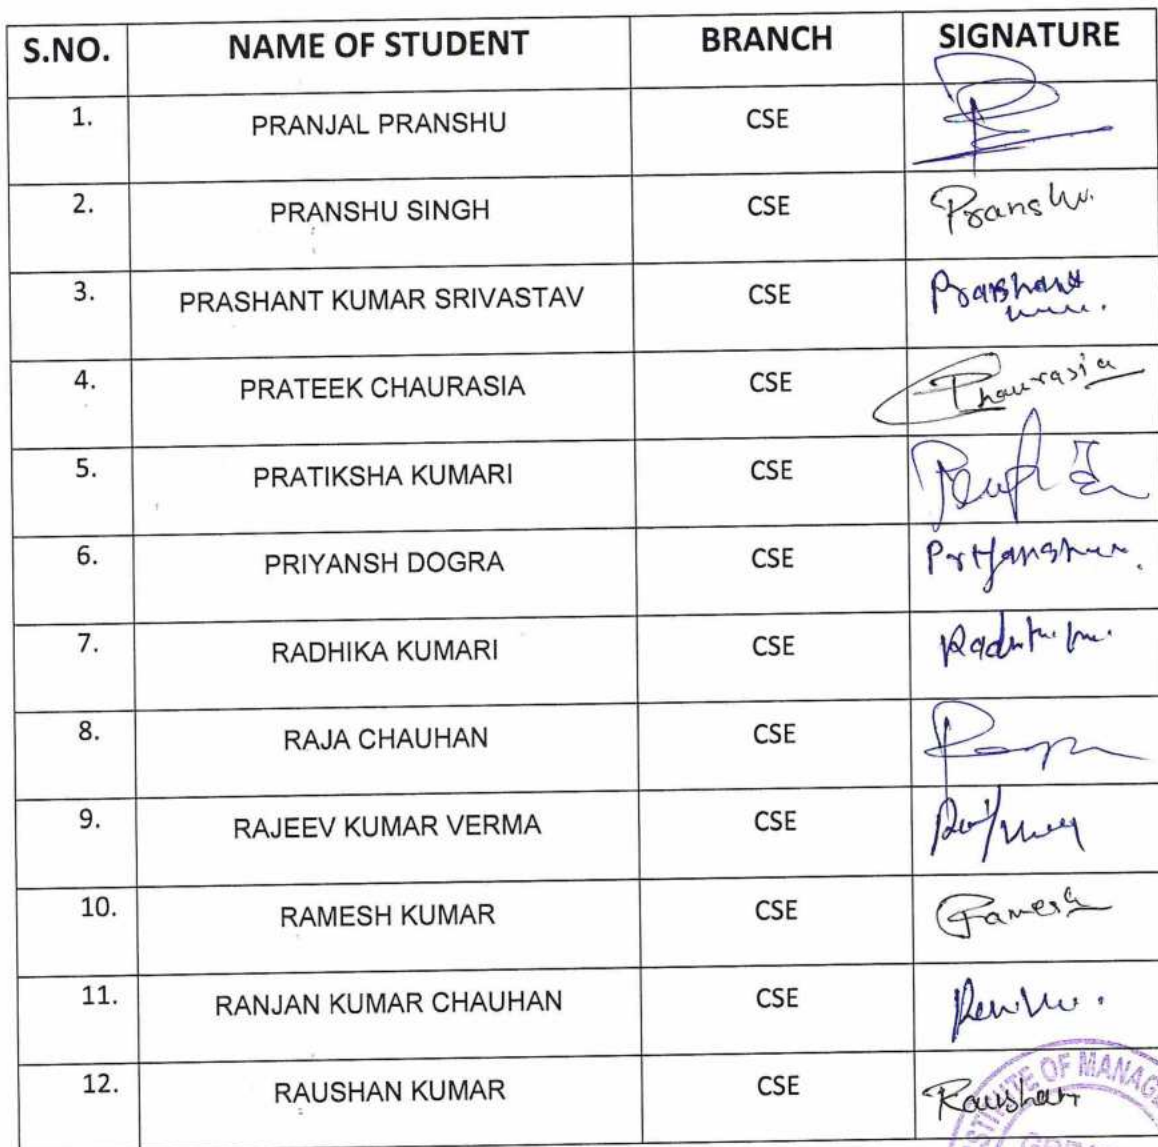 S.NO. NAME OF STUDENT BRANCH SIGNATURE
1. PRANJAL PRANSHU CSE
2. PRANSHU SINGH CSE Pranshu.
3. PRASHANT KUMAR SRIVASTAV CSE Prashant
4. PRATEEK CHAURASIA CSE Chaurasia
5. PRATIKSHA KUMARI CSE
6. PRIYANSH DOGRA CSE
7. RADHIKA KUMARI CSE
8. RAJA CHAUHAN CSE
9. RAJEEV KUMAR VERMA CSE
10. RAMESH KUMAR CSE Ramesh
11. RANJAN KUMAR CHAUHAN CSE
12. RAUSHAN KUMAR CSE Raushan
OF